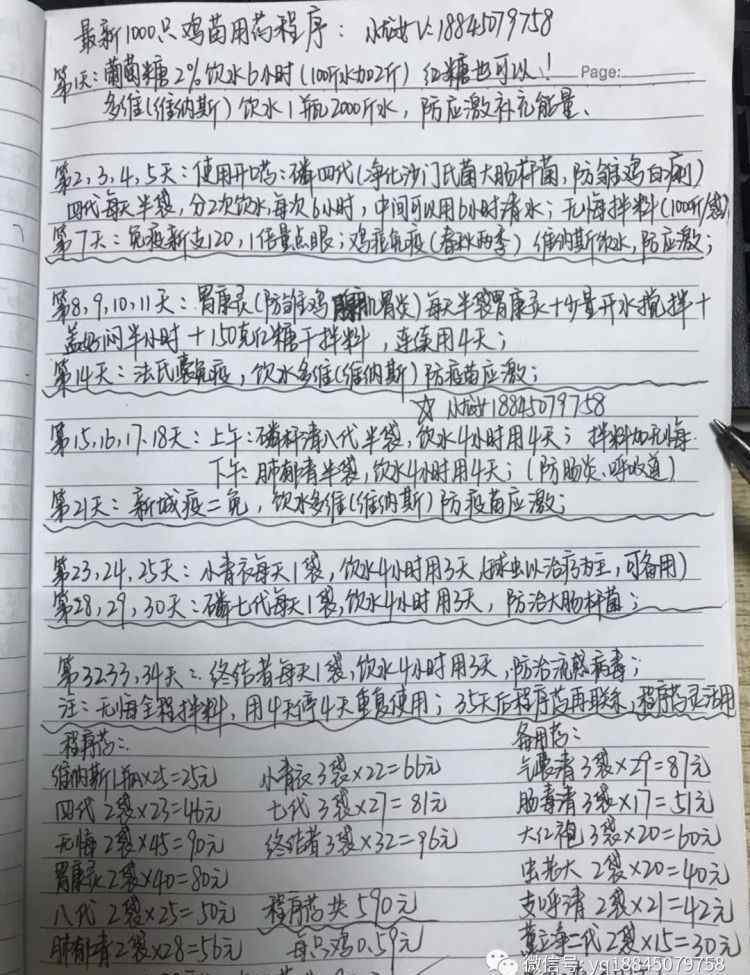 最新1000只鸡苗用药程序: 小龙女V:18845079758
第1天:葡萄糖2%饮水6小时(100斤水加2斤) 红糖也可以!
Page:
多维(维纳斯)饮水1瓶2000斤水,防应激补充能量、
第2,3,4,5天:使用开口药:磷四代(净化沙门氏菌大肠杆菌,防雏鸡白痢)
四代每天半袋,分2次饮水,每次6小时,中间可以用6小时清水;无悔拌料(100斤/袋);
第7天:免疫新支120,1倍量点眼;鸡痘免疫(春秋两季)维纳斯饮水,防应激;
第8,9,10,11天:胃康灵(防雏鸡肌胃炎)每天半袋胃康灵+少量开水搅拌+
盖好闷半小时+150克红糖干拌料,连续用4天;
第14天:法氏囊免疫,饮水多维(维纳斯)防疫苗应激;
☆小龙女18845079758
第15,16,17、18天:上午:磷杆清八代半袋,饮水4小时用4天;拌料加无悔
下午:肺郁青半袋,饮水4小时用4天;(防肠炎、呼吸道)
第21天:新城疫二免,饮水多维(维纳斯)防疫苗应激;
第23,24,25天:小青衣每天1袋,饮水4小时用3天(球虫以治疗为主,可备用)
第28,29,30天:磷七代每天1袋,饮水4小时用3天,防治大肠杆菌;
第3233,34天:终结者每天1袋,饮水4小时用3天,防治流感病毒;
注:无悔全程拌料,用4天停4天重复使用;35天后程序药再联系,程序药灵活用
程序药: 备用药:
维纳斯1瓶×25=25元 小青衣3袋×22=66元 气囊清3袋×29=87元
四代2袋×23=46元 七代3袋×27=81元 肠毒清3袋×17=51元
无悔2袋×45=90元 终结者3袋×32=96元 大红袍3袋×20=60元
胃康灵2袋×40=80元 虫老大2袋×20=40元
八代2袋×25=50元 程序药共590元 支呼清2袋×21=42元
肺郁青2袋×28=56元 每只鸡0.59元 二代2袋×15=30元
微信号:yq18845079758